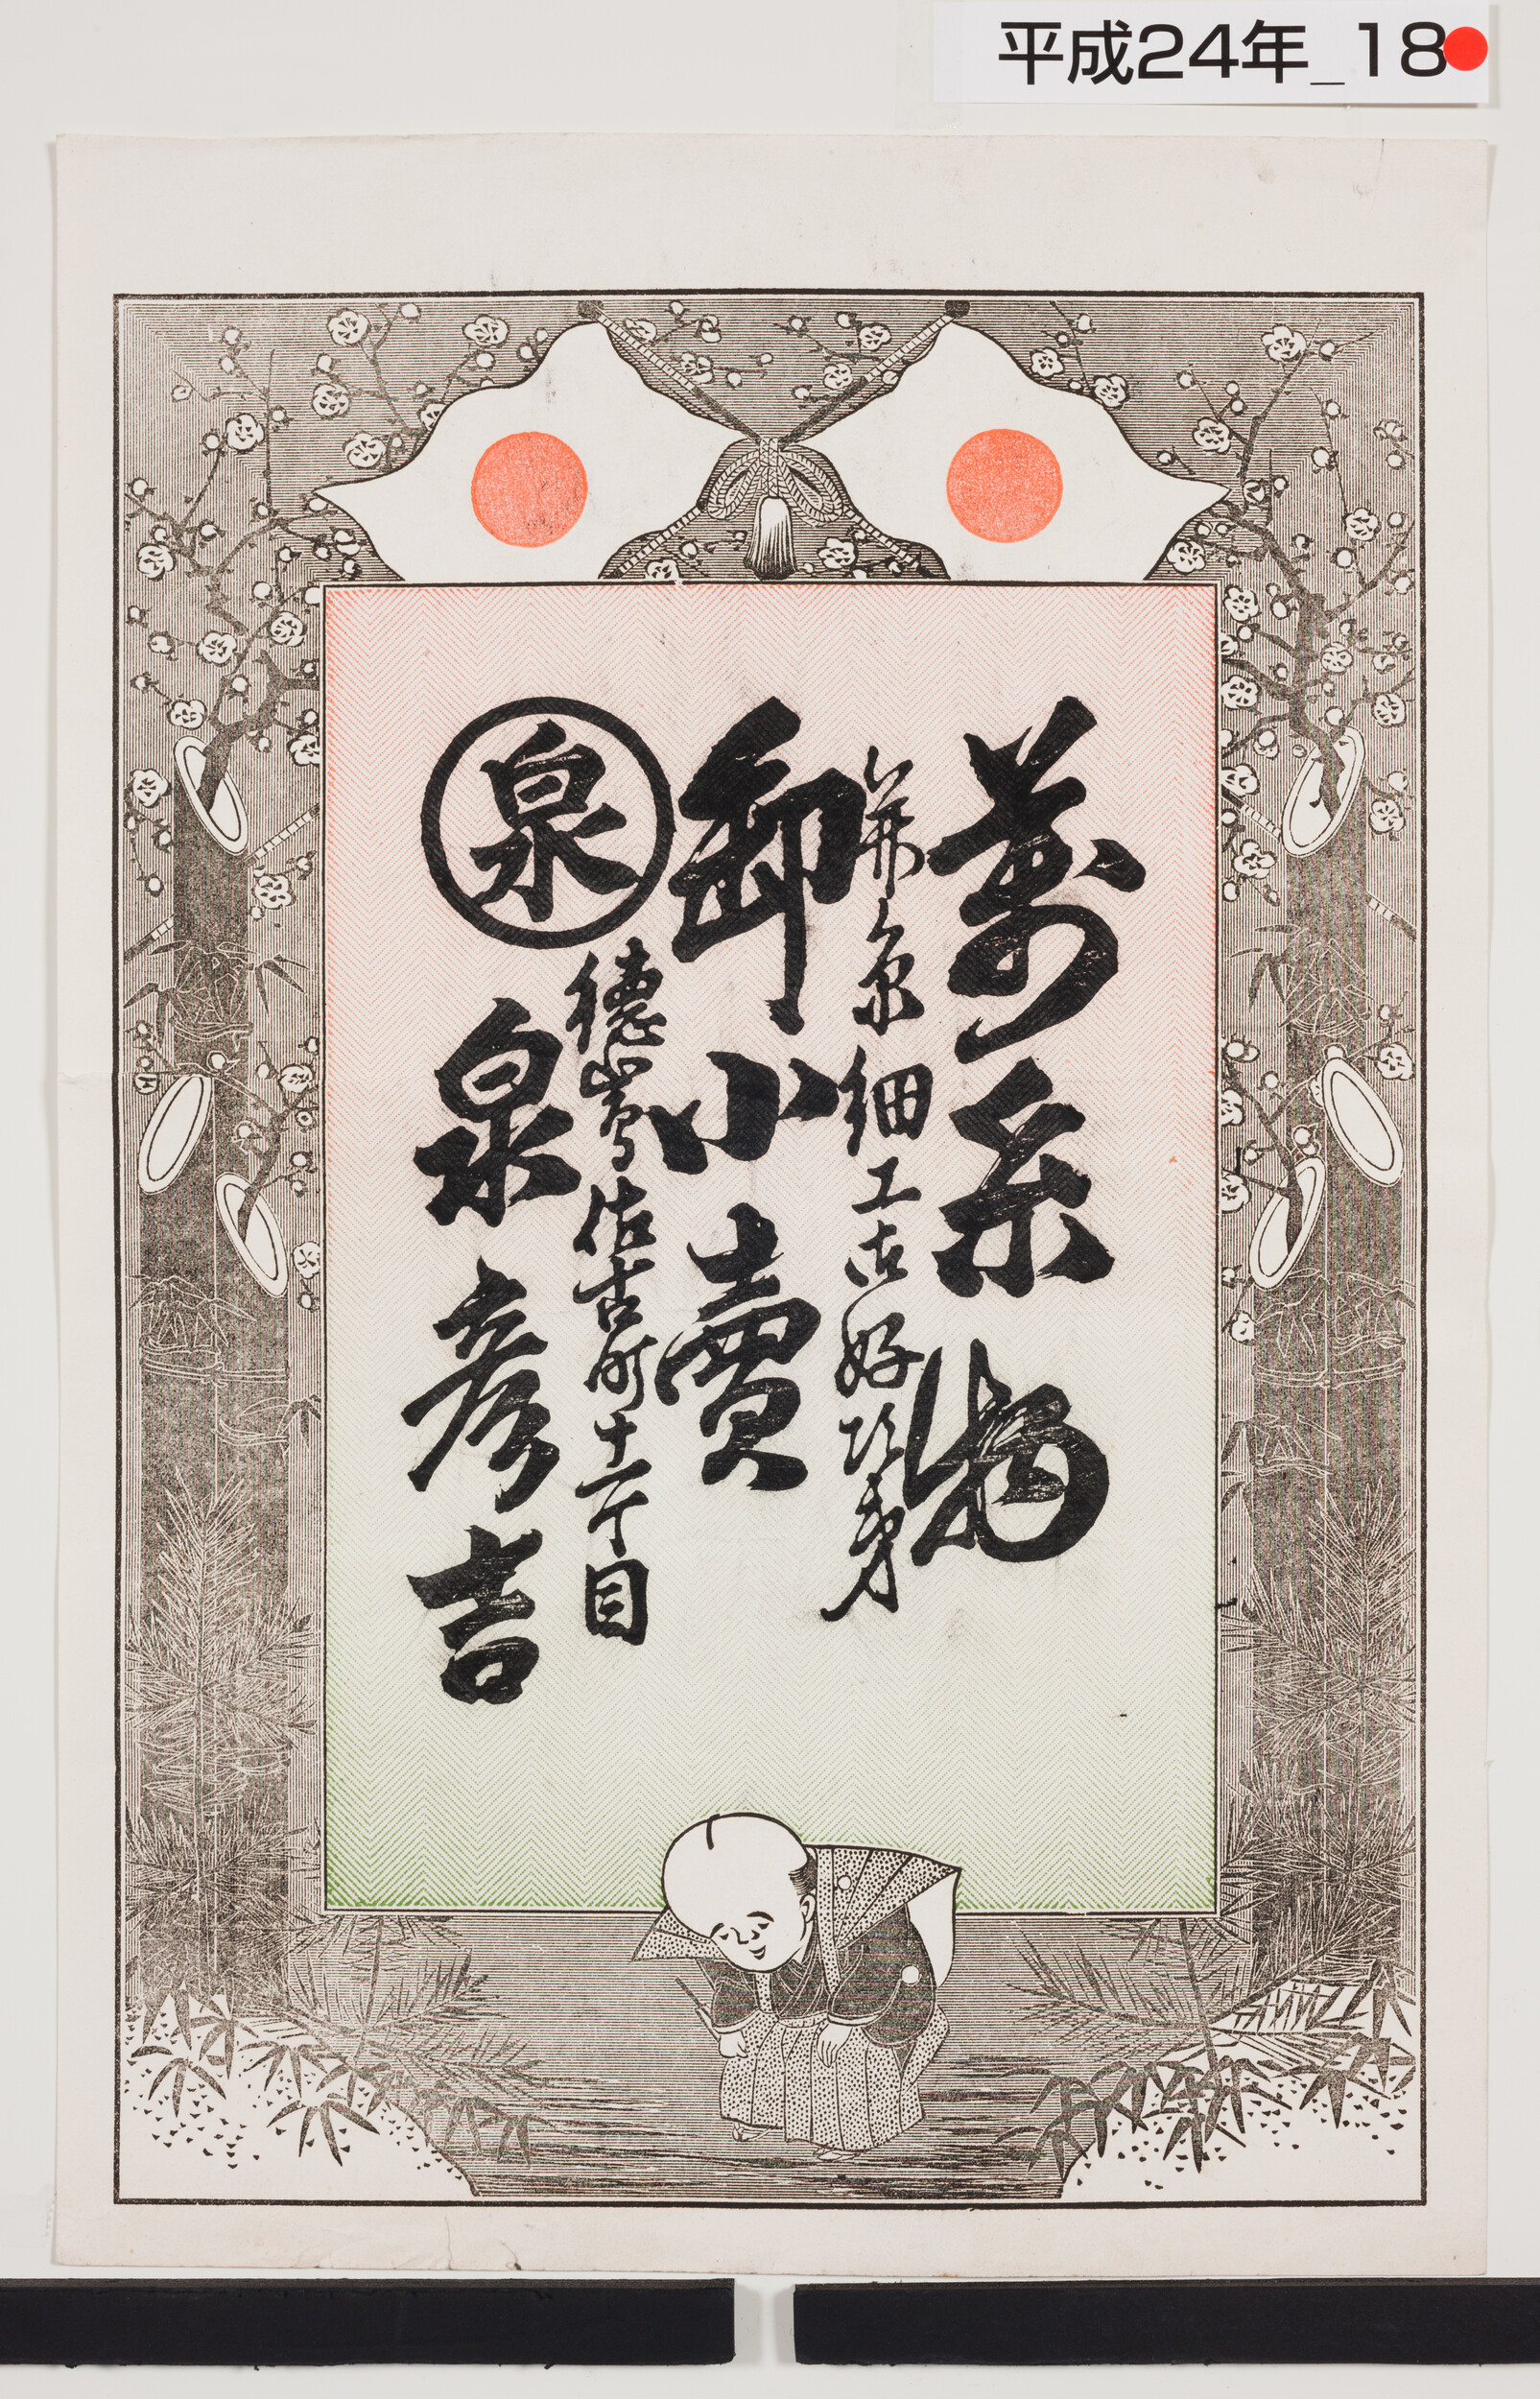 平成24年_18
萬糸物
并糸細工御好次第
卸小賣
徳嶌佐古町十一丁目
泉 泉彦吉